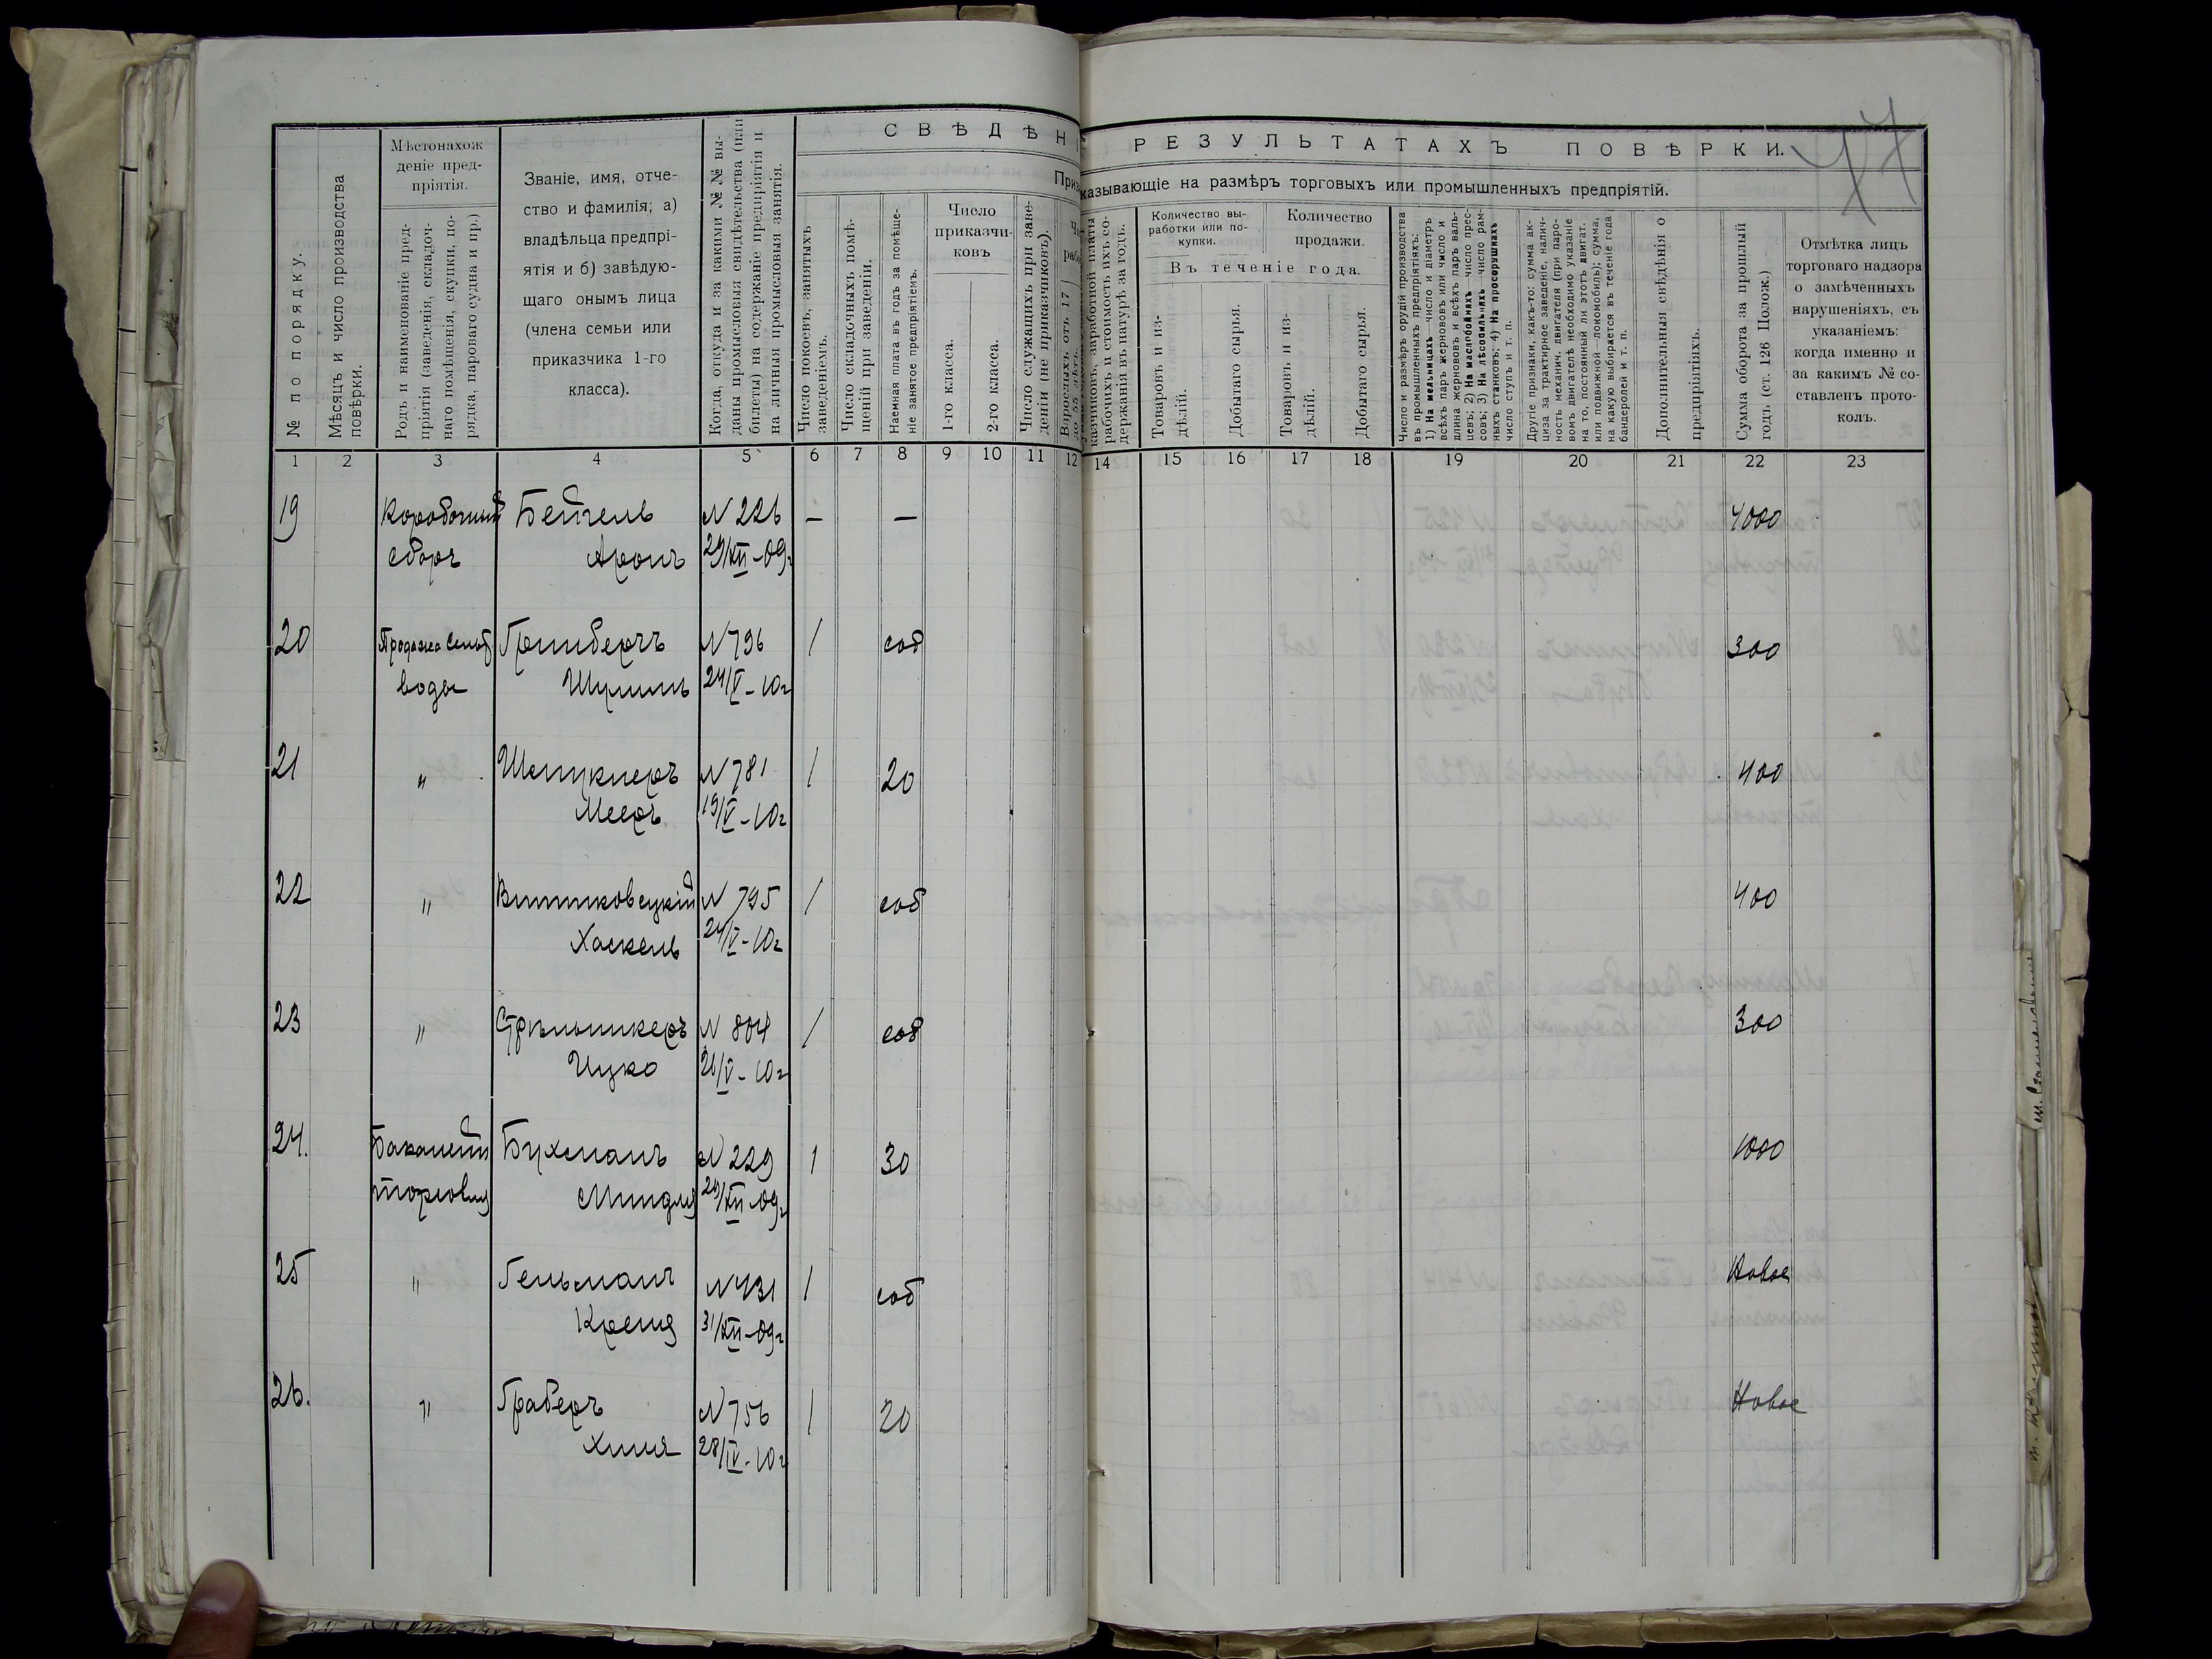 СВѢДѢНІ
РЕЗУЛЬТАТАХЪ ПОВѢРКИ.
Приз
казывающіе на размѣръ торговыхъ или промышленныхъ предпріятій.
17
№ по порядку.
Мѣсяцъ и число производства
повѣрки.
Мѣстонахож
деніе пред-
пріятія.
Родъ и наименованіе пред-
пріятія (заведенія, складоч-
наго помѣщенія, скупки, по-
рядка, пароваго судна и пр.)
Званіе, имя, отче-
ство и фамилія; а)
владѣльца предпрі-
ятія и б) завѣдую-
щаго онымъ лица
(члена семьи или
приказчика 1-го
класса).
Когда, откуда и за какими №№ вы-
даны промысловыя свидѣтельства (или
билеты) на содержаніе предпріятія и
на личныя промысловыя занятія.
Число покоевъ, занятыхъ
заведеніемъ.
Число складочныхъ помѣ-
щеній при заведеніи.
Наемная плата въ годъ за помѣще-
ніе занятое предпріятіемъ.
Число
приказчи-
ковъ
1-го класса.
2-го класса.
Число служащихъ при заве-
деніи (не приказчиковъ).
Взрослыхъ отъ 17
казчиковъ, заработной платы
рабочихъ и стоимость ихъ со-
держанія въ натурѣ за годъ.
Количество вы-
работки или по-
купки.
Количество
продажи.
Въ теченіе года.
Товаровъ и из-
дѣлій.
Добытаго сырья.
Товаровъ и из-
дѣлій.
Добытаго сырья.
Число и размѣръ орудій производства
въ промышленныхъ предпріятіяхъ:
1) На мельницахъ—число и діаметръ
всѣхъ паръ жернововъ или число и
длина жернововъ и всѣхъ паръ валь-
цевъ; 2) На маслобойняхъ—число прес-
совъ; 3) На лѣсопильняхъ—число рам-
ныхъ станковъ; 4) На просорушкахъ
число ступъ и т. п.
Другіе признаки, какъ-то: сумма ак-
циза за трактирное заведеніе, налич-
ность механич. двигателя (при паро-
вомъ двигателѣ необходимо указаніе
на то, постоянный ли этотъ двигат.
или подвижной—локомобиль); сумма,
на какую выбирается въ теченіе года
бандеролей и т. п.
Дополнительныя свѣдѣнія о
предпріятіяхъ.
Сумма оборота за прошлый
годъ (ст. 126 Полож.)
Отмѣтка лицъ
торговаго надзора
о замѣченныхъ
нарушеніяхъ, съ
указаніемъ:
когда именно и
за какимъ № со-
ставленъ прото-
колъ.
1 2 3 4 5 6 7 8 9 10 11 12 14 15 16 17 18 19 20 21 22 23
19 Коробочный Бейгель N 226 — — 4000
сборъ Аронъ 29/XII-09г
20 Продажа Сельт Гринбергъ N 796 1 соб 300
воды Шулимъ 24/V-10г
21 „ N 781 1 20 400
Мееръ 19/V-10г
22 „ Витниковецкій N 795 1 соб 400
Хаскель 24/V-10г
23 „ N 804 1 соб 300
Ицко 26/V-10г
24. Бакалейн Бухманъ N 229 1 30 1000
торговля Миндля 29/XII-09г
25 „ Гельманъ N 431 1 соб Новое
Крейня 31/XII-09г
26. „ Граберъ N 756 1 20 Новое
28/IV-10г